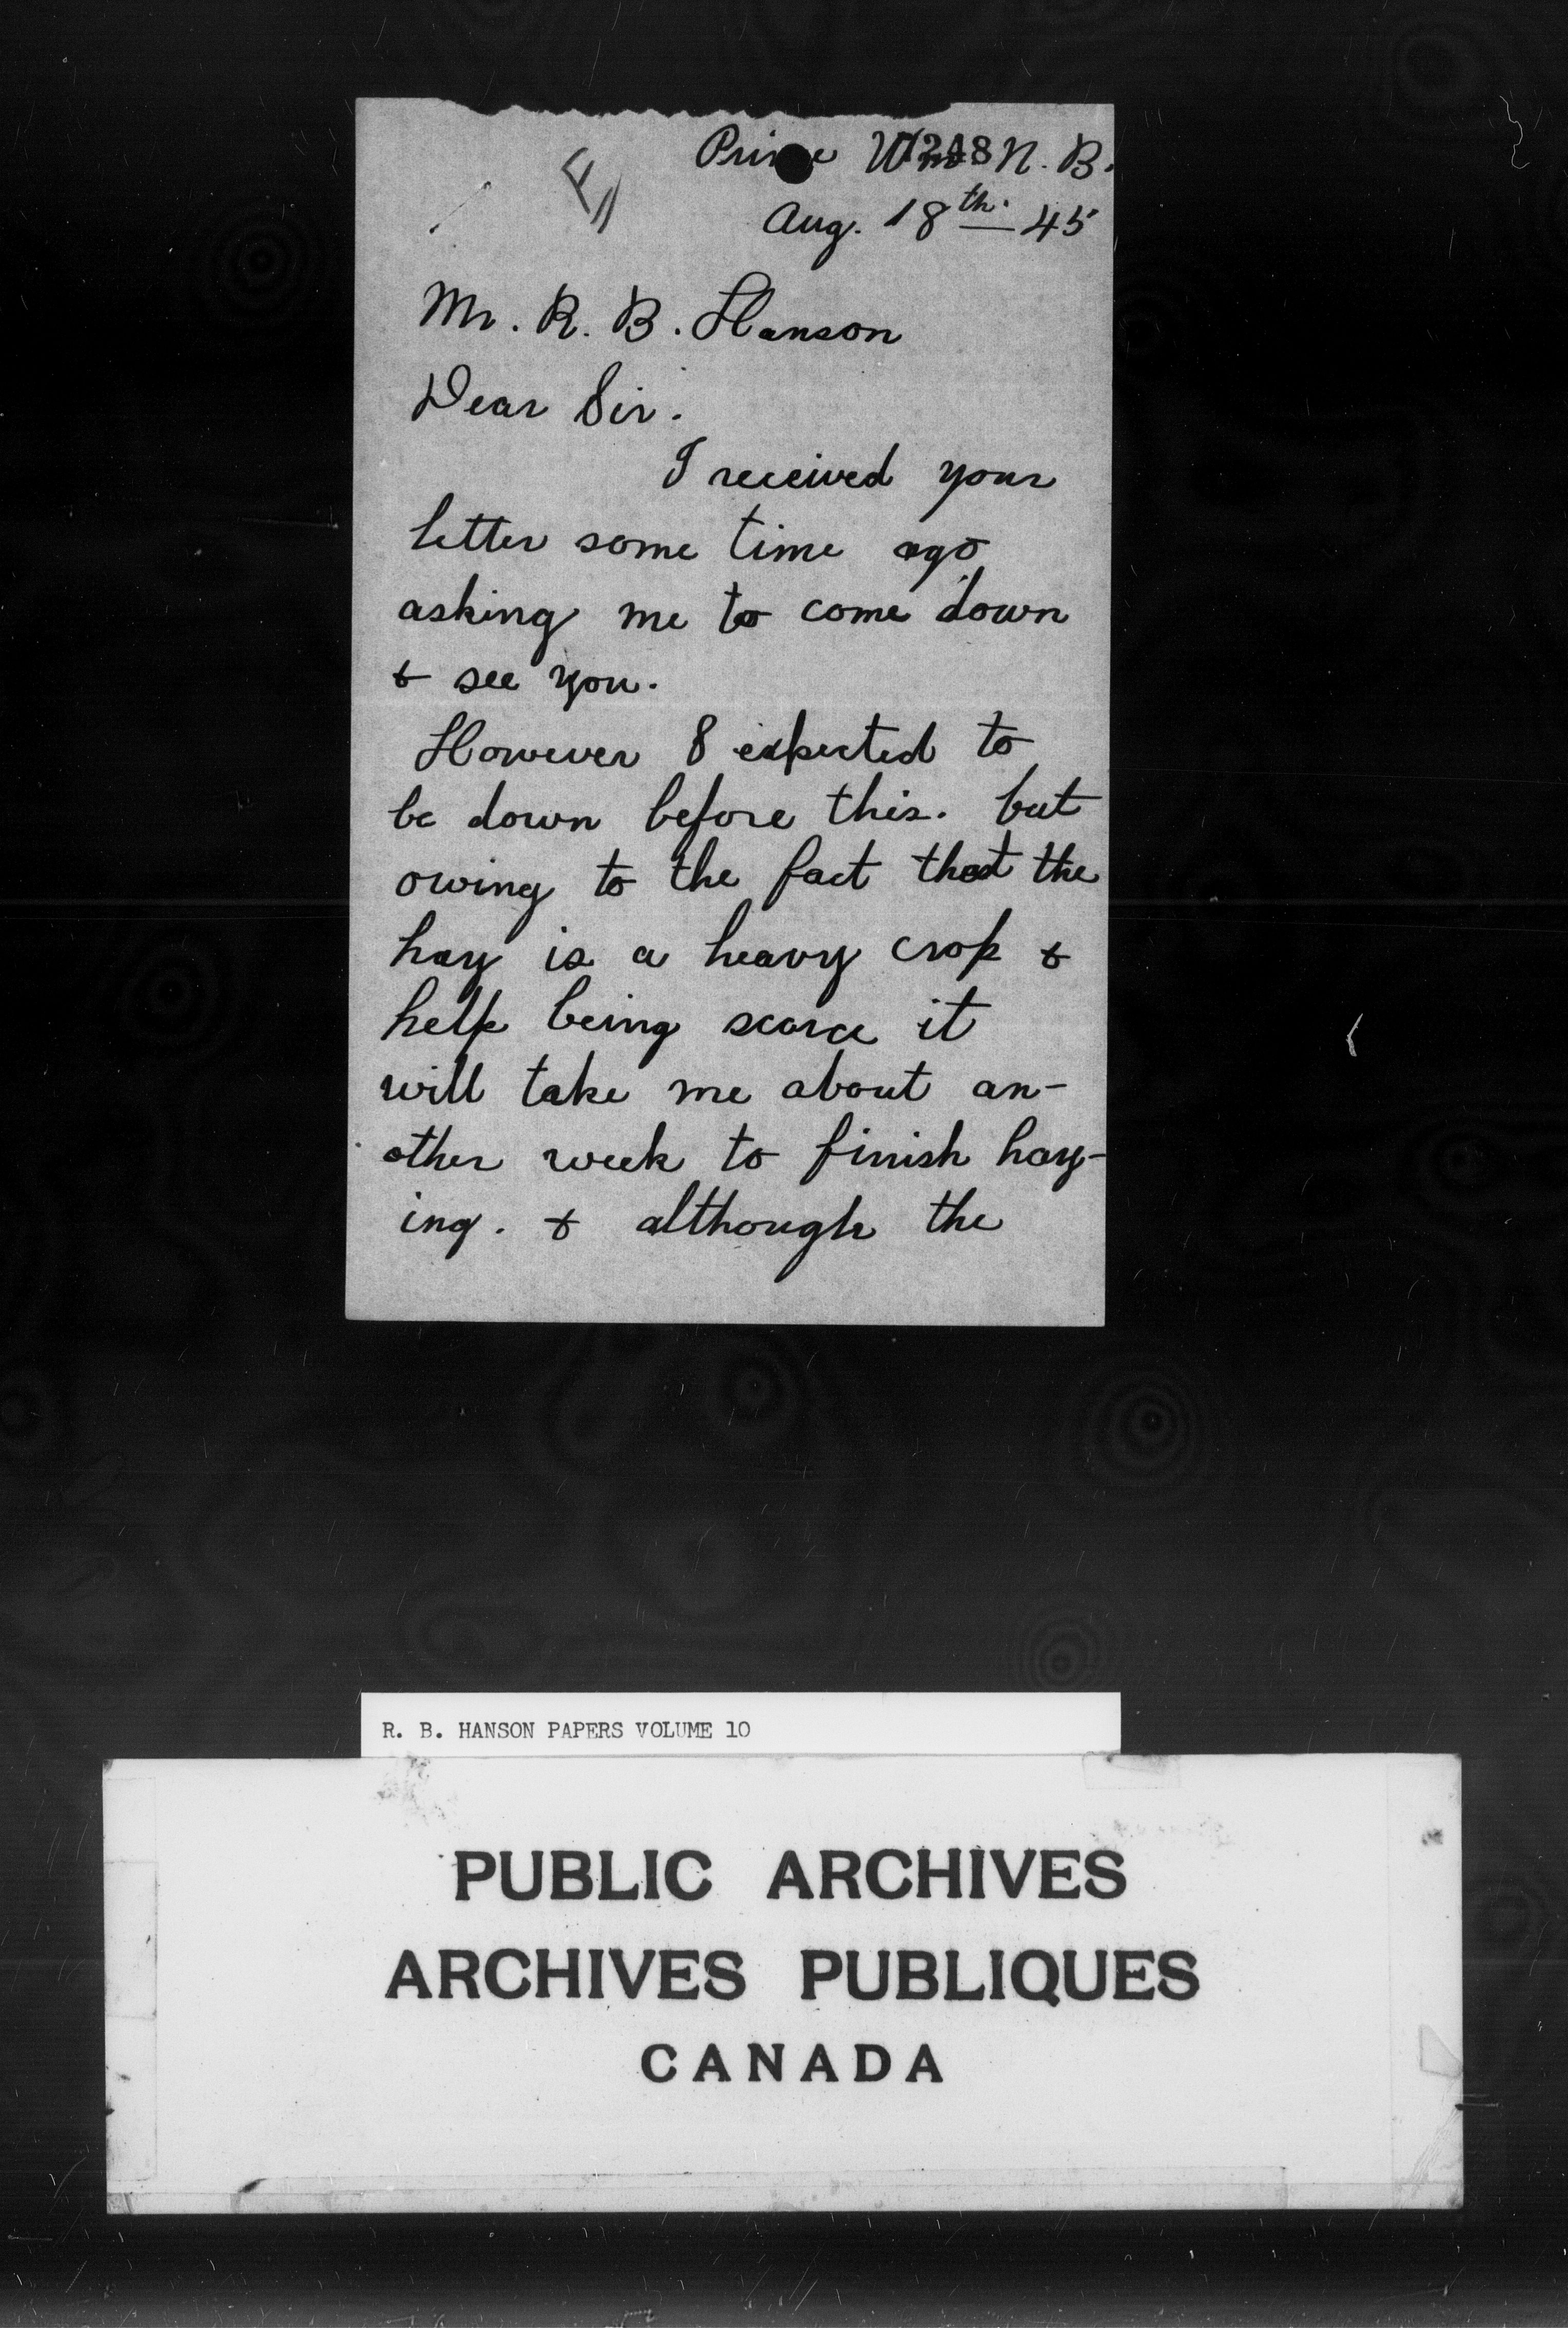 Prince Wm N. B.
Aug. 18th. 45
Mr. R. B. Hanson
Dear Sir.
I received your
letter some time ago
asking me to come down
& see you.
However I expected to
be down before this. but
owing to the fact that the
hay is a heavy crop &
help being scarce it
will take me about an-
other week to finish hay-
ing. & although the
R. B. HANSON PAPERS VOLUME 10
PUBLIC ARCHIVES
ARCHIVES PUBLIQUES
CANADA